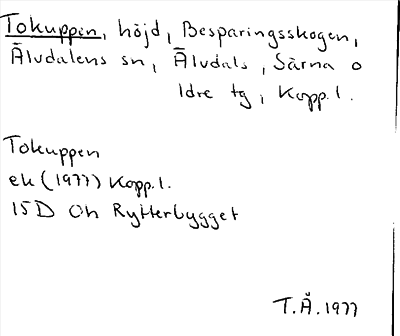 Tokuppen, höjd, Besparingsskogen,
Älvdalens sn, Älvdals, Särna o
Idre tg, Kopp.l.
Tokuppen
ek (1977) Kopp.l.
15D Oh Rytterbygget
T.Å. 1977